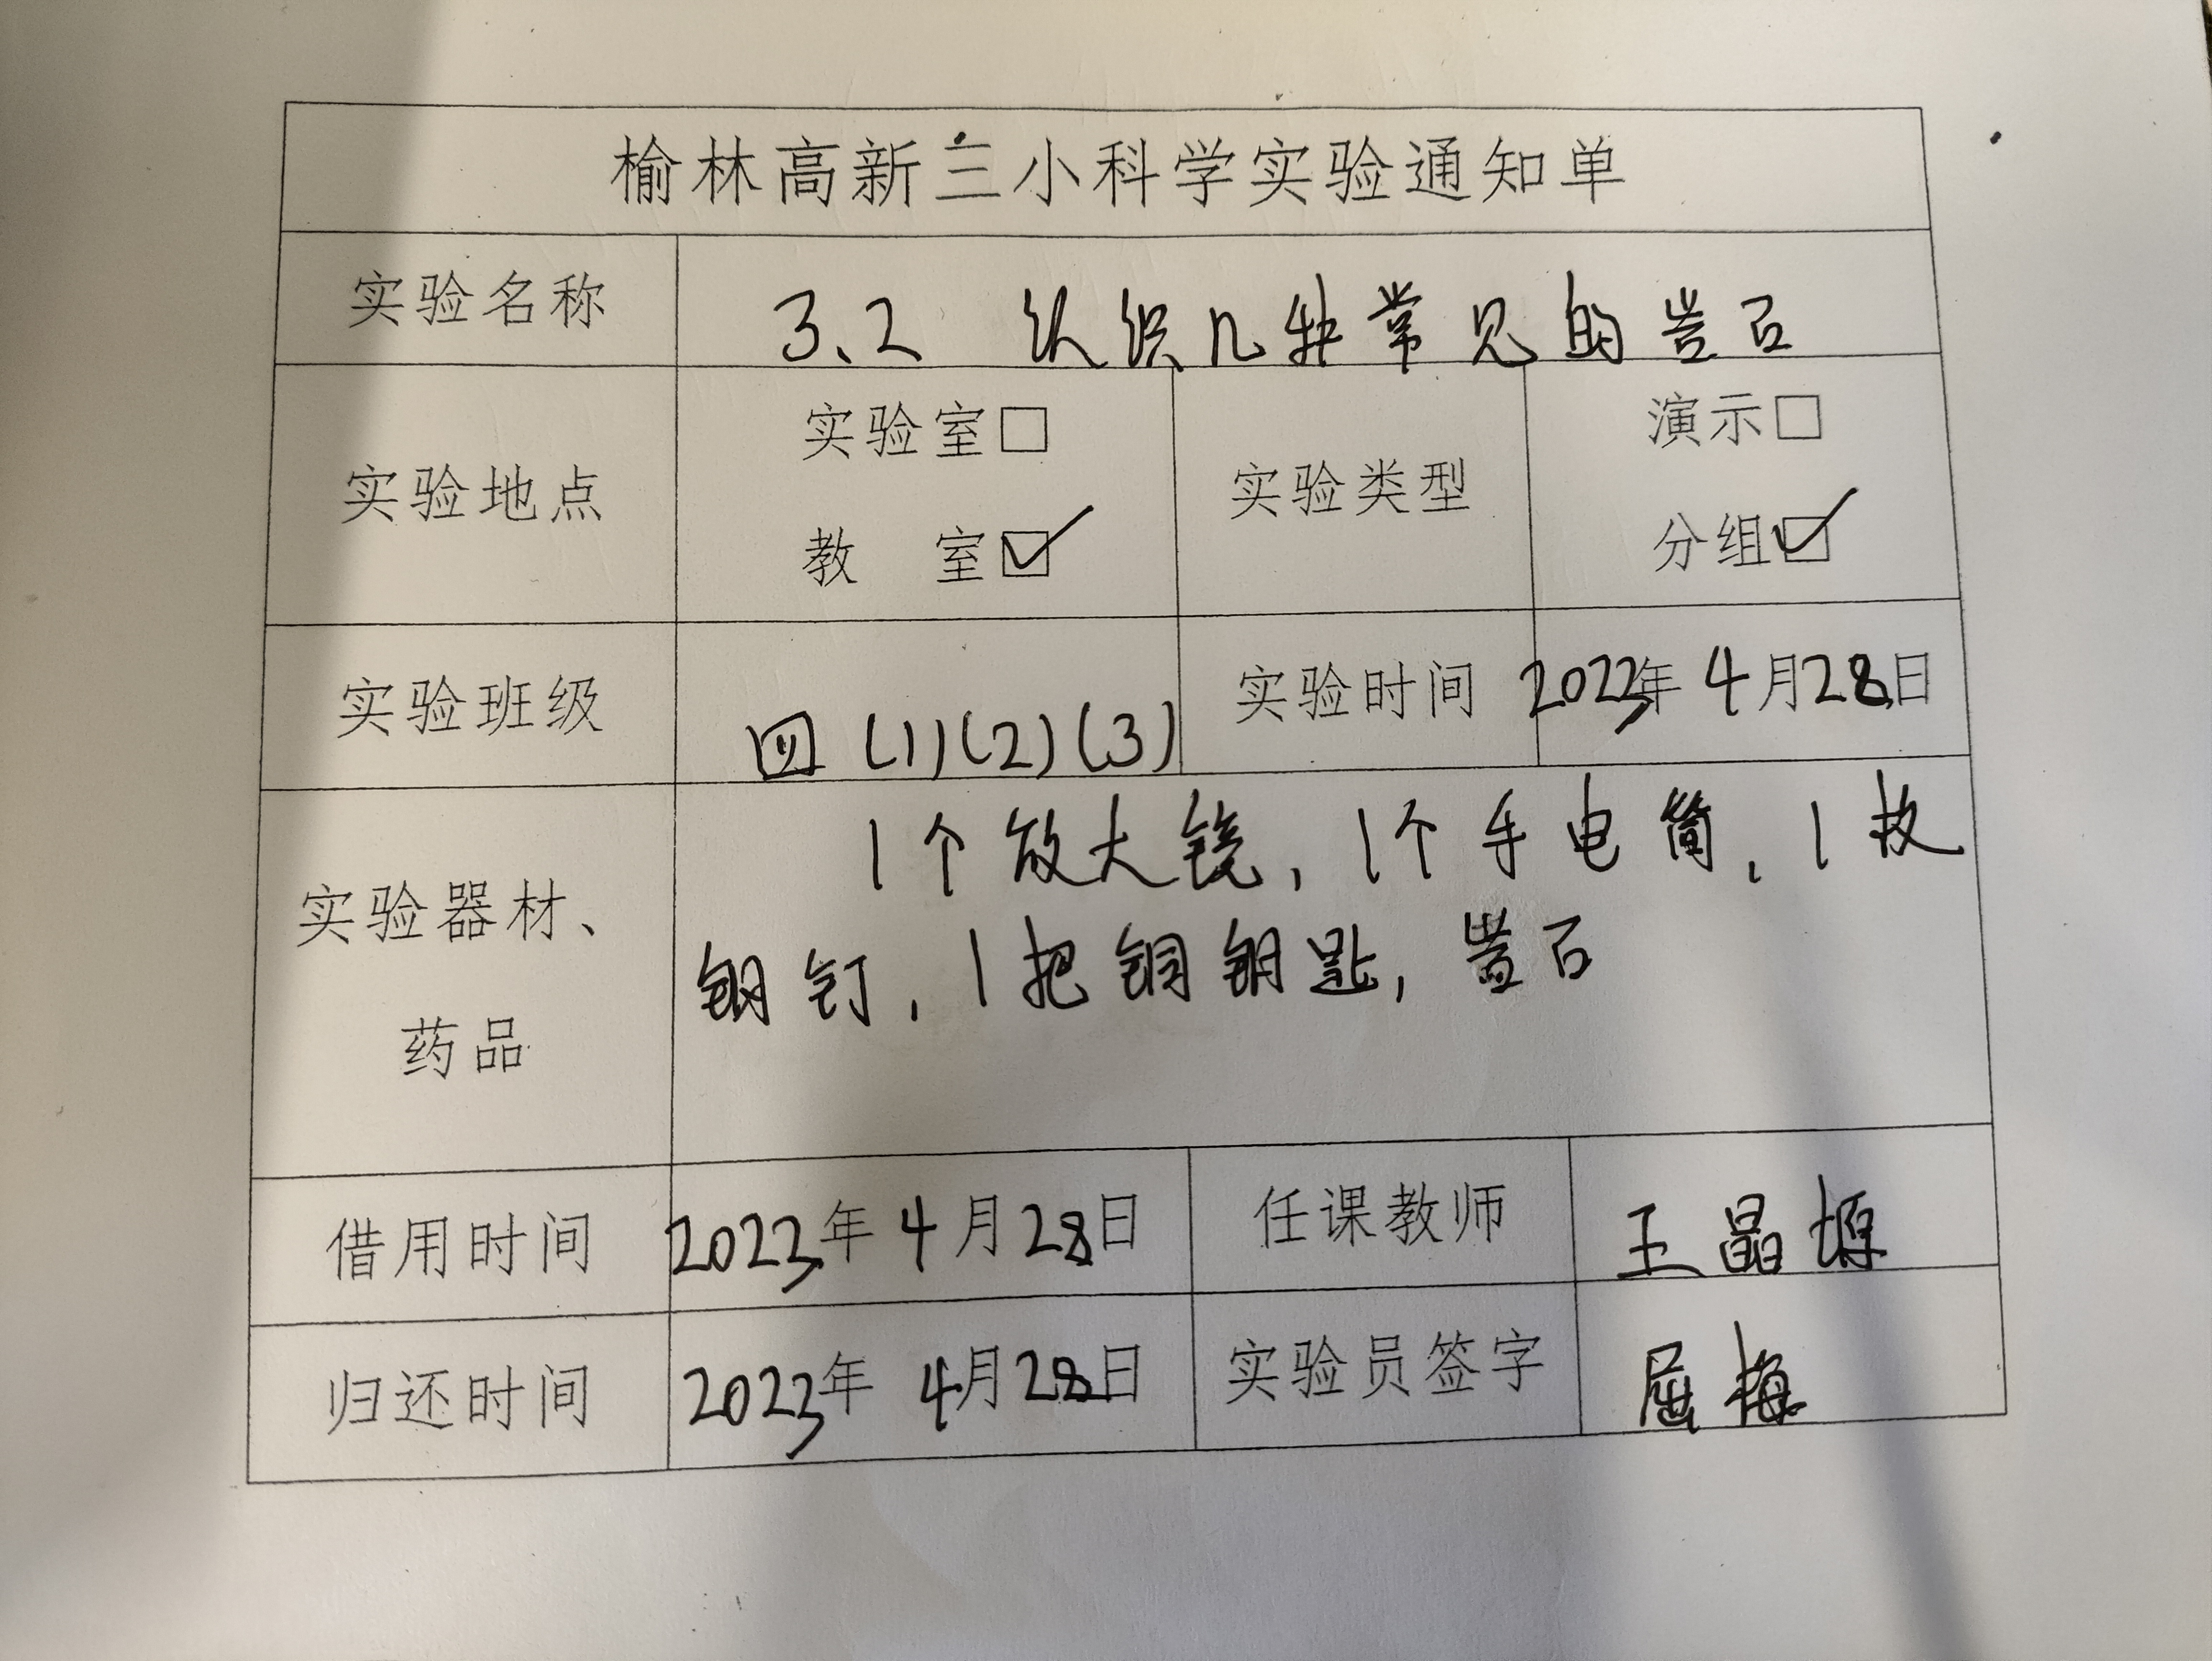 榆林高新三小科学实验通知单
实验名称 3.2 认识几种常见的岩石
实验地点 实验室□ 教 室☑ 实验类型 演示□ 分组☑
实验班级 四(1)(2)(3) 实验时间 2023年4月28日
实验器材、药品 1个放大镜,1个手电筒,1枚
钢钉,1把铜钥匙,岩石
借用时间 2023年4月28日 任课教师 王晶塬
归还时间 2023年4月28日 实验员签字 屈梅